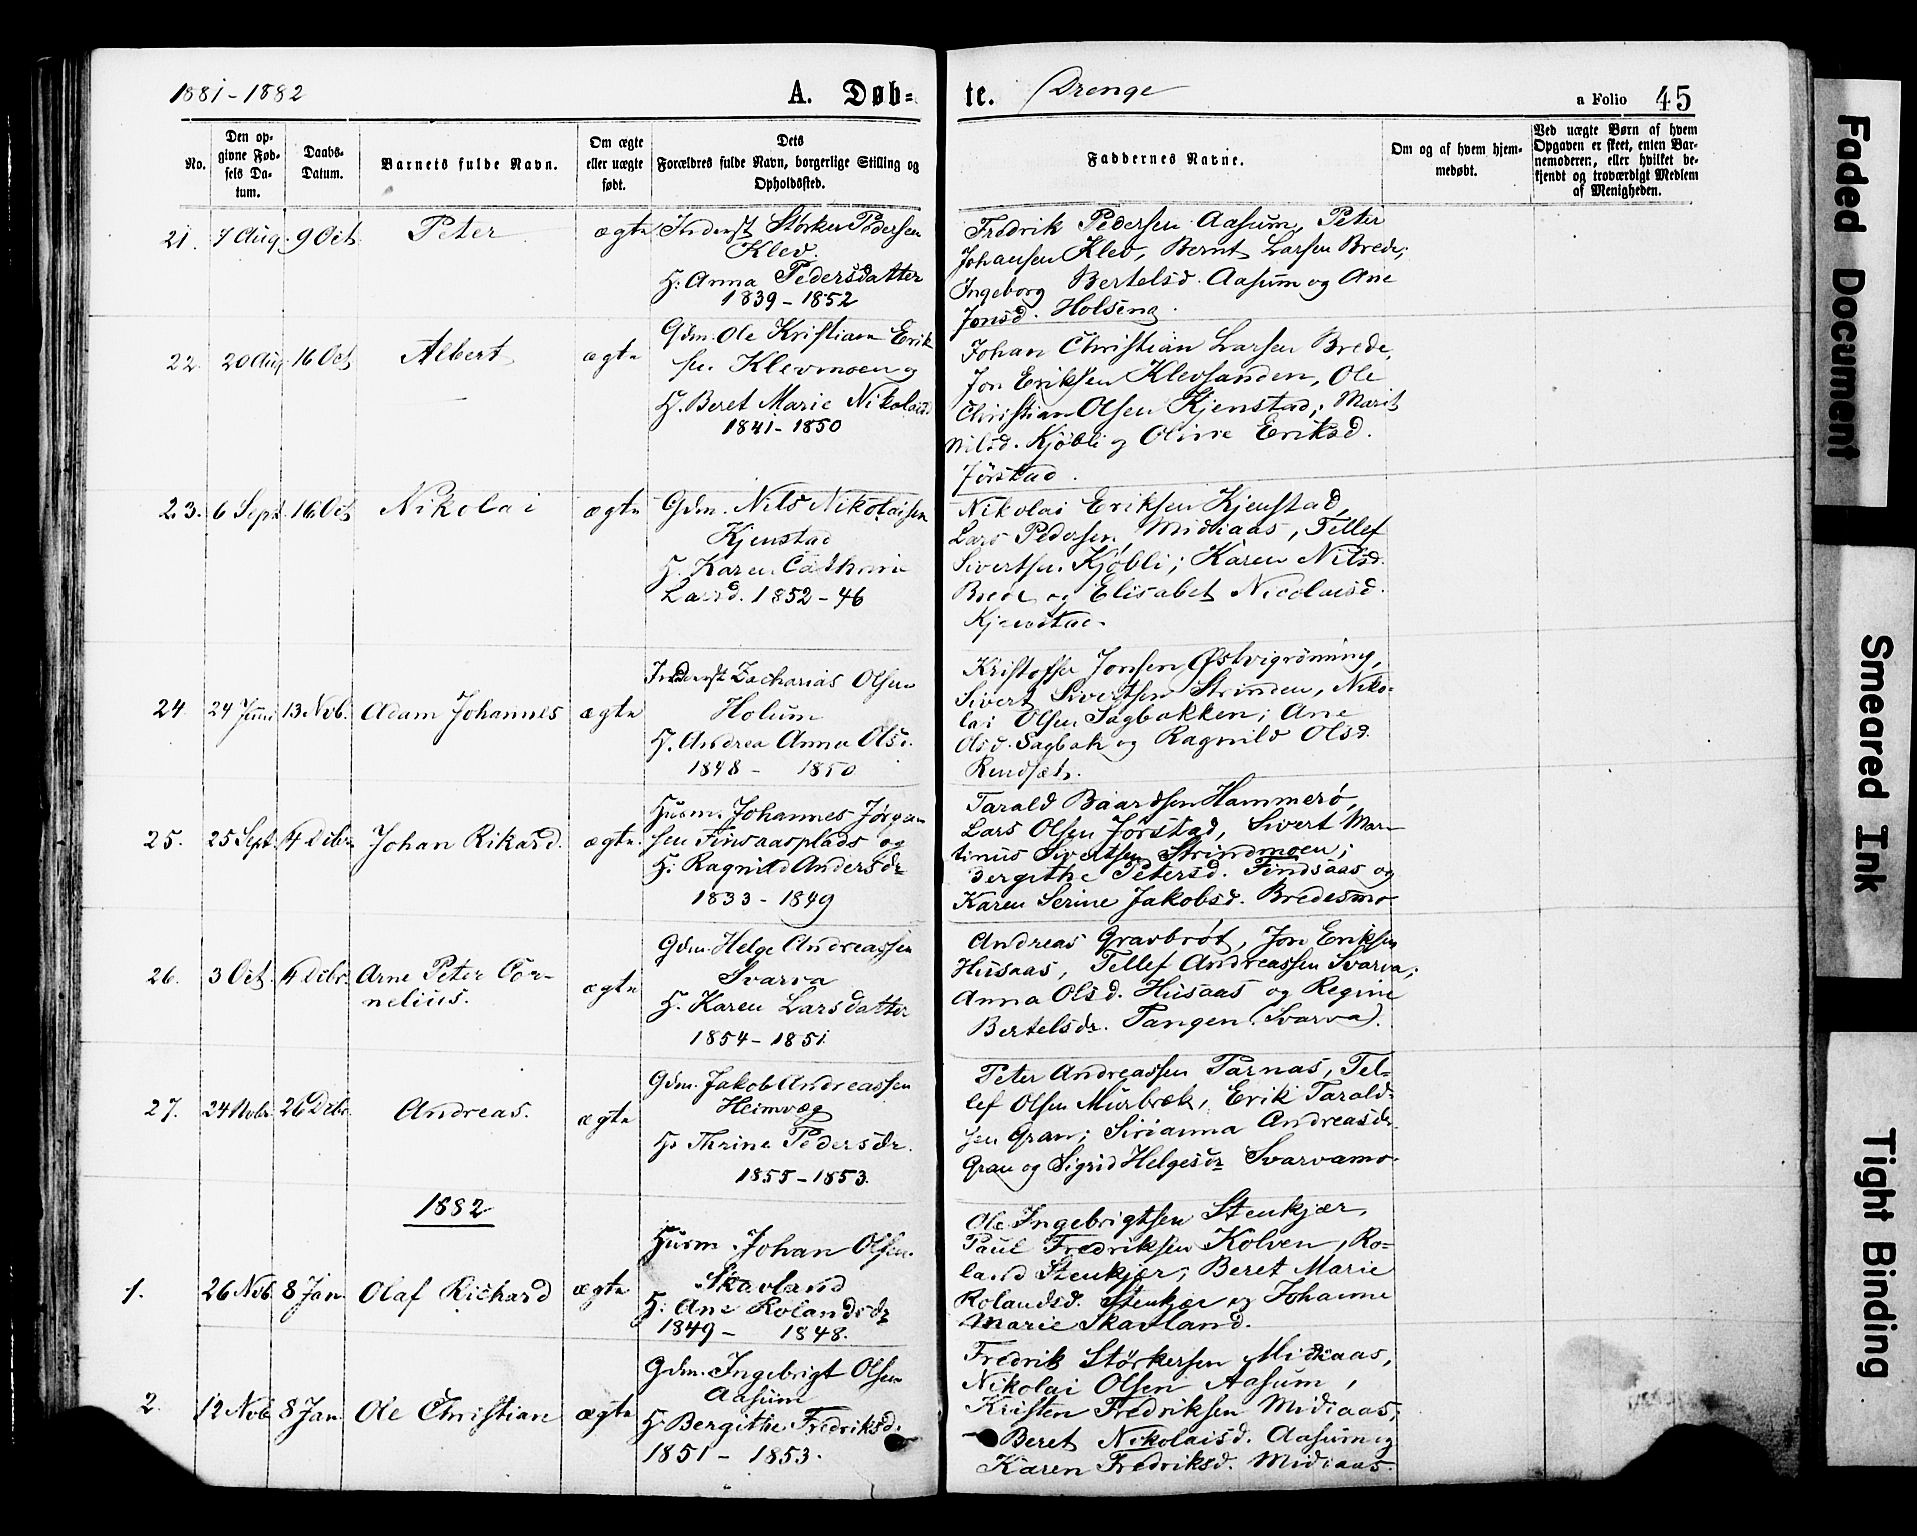 1881-1882 A. Døb= te. Drenge a Folio 45
No.
Den op-
givne Fød-
sels Da-
tum.
Daabs-
Datum.
Barnets fulde Navn.
Om ægte
eller uægte
født.
Dets
Forældres fulde Navn, borgerlige Stilling og
Opholdssted.
Faddernes Navne.
Om og af hvem hjem-
medøbt.
Ved uægte Børn af hvem
Opgaven er skeet, enten Bar-
nemoderen, eller hvilket be-
kjendt og troværdigt Medlem
af Menigheden.
21. 7 Aug. 9 Oct Peter ægte
Størker Pedersen
Klev.
H. Anna Pedersdatter
1839 - 1852
Fredrik Pedersen Aasum, Peter
Johansen Klev, Bernt Larsen Brede;
Ingeborg Bertelsd. Aasum og Ane
Jonsd. Holsing.
22. 20 Aug. 16 Oct Albert ægte
Gdm. Ole Kristian Erik
sen Klevmoen og
H. Beret Marie Nikolaisd
1841 - 1850
Johan Christian Larsen Brede,
Jon Eriksen Klevsanden, Ole
Christian Olsen Kjenstad; Marit
Nilsd. Kjøbli og Oline Eriksd.
Jørstad.
23. 6 Sept 16 Oct Nikolai ægte
Gdm. Nils Nikolaisen
Kjenstad
H. Karen Cathrine
Larsd. 1852 - 46
Nikolai Eriksen Kjenstad,
Lars Pedersen Midiaas, Tellef
Sivertsen Kjøbli; Karen Nilsd.
Brede og Elisabet Nicolaisd.
Kjenstad.
24. 24 Juni 13 Nob. Adam Johannes ægte
Inderst Zacharias Olsen
Holum
H. Andrea Anna Olsd.
1848 - 1850
Kristoffer Jonsen Østvigrønning,
Sivert Sivertsen Strinden, Niko-
lai Olsen Sagbakken; Ane
Olsd. Sagbak og Ragnild Olsd.
Rendsæt.
25. 25 Sept. 4 Debr Johan Rikard. ægte
Husm. Johannes Jørgen
sen Finsaasplads og
H. Ragnild Andersdr
1833 - 1849
Tarald Baardsen Hammerø,
Lars Olsen Jørstad, Sivert Mar-
tinus Sivertsen Strindmoen;
Bergithe Petersd. Findsaas og
Karen Serine Jakobsd. Bredesmo
26. 3 Oct. 4 Debr. Arne Peter Cor-
nelius. ægte
Gdm. Helge Andreassen
Svarva
H. Karen Larsdatter
1854 - 1851
Andreas Gravbrøt, Jon Eriksen
Husaas, Tellef Andreassen Svarva;
Anna Olsd. Husaas og Regine
Bertelsdr. Tangen (Svarva).
27. 24 Nobr. 26 Debr. Andreas. ægte
Gdm. Jakob Andreassen
Heimvæg
H. Thrine Pedersdr.
1855 - 1853.
Peter Andreassen Parnas, Tel-
lef Olsen Murbræk, Erik Tarald-
sen Gran; Sirianna Andreasdr
Gran og Sigrid Helgesdr Svarvamo.
1882
1. 26 Nob. 8 Jan. Olaf Richard ægte
Husm. Johan Olsen
Skavland
H. Ane Rolandsdr
1849 - 1848.
Ole Ingebrigtsen Stenkjær,
Paul Fredriksen Kolven, Ro-
land Stenkjær; Beret Marie
Rolandsd. Stenkjær og Johanne
Marie Skavland.
2. 12 Nob. 8 Jan. Ole Christian ægte
Gdm. Ingebrigt Olsen
Aasum
H. Bergithe Fredriksd.
1851 - 1853.
Fredrik Størkersen Midiaas,
Nikolai Olsen Aasum,
Kristen Fredriksen Midiaas;
Beret Nikolaisd. Aasum og
Karen Fredriksd. Midiaas.
Faded Document
Smeared Ink
Tight Binding